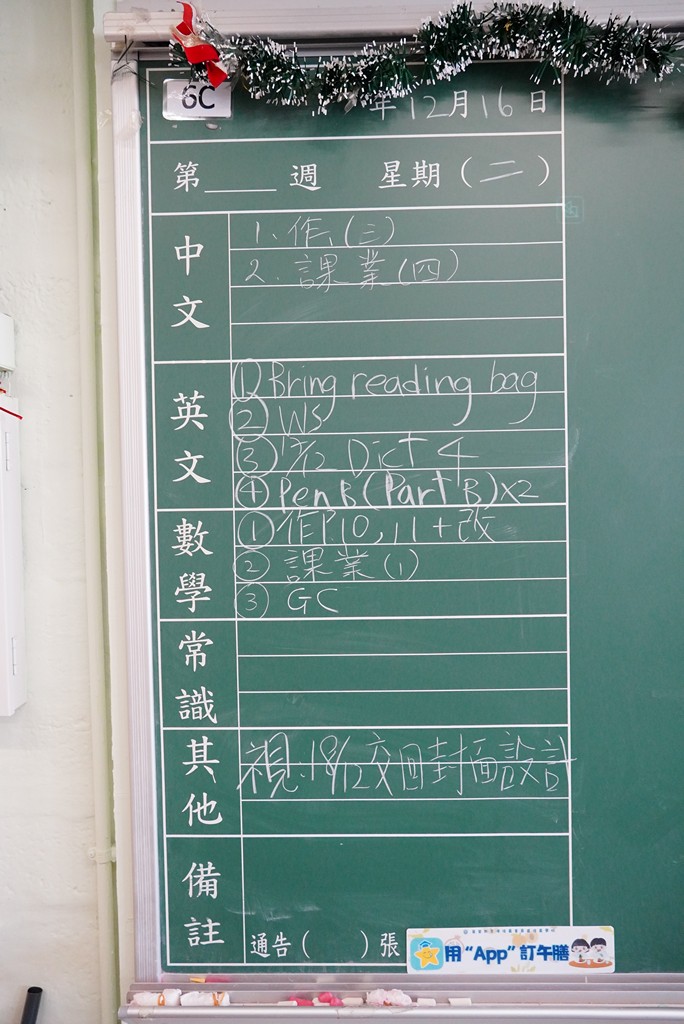 6C
年12月16日
第____週 星期(二)
中文
1. 作(三)
2. 課業(四)
英文
① Bring reading bag
② WS
③ Dict 4
④ Pen B (Part B) x2
數學
① 作P.10, 11 + 改
② 課業(1)
③ GC
常識
其他
視:18/12交回封面設計
備註
通告( )張
用“App”訂午膳